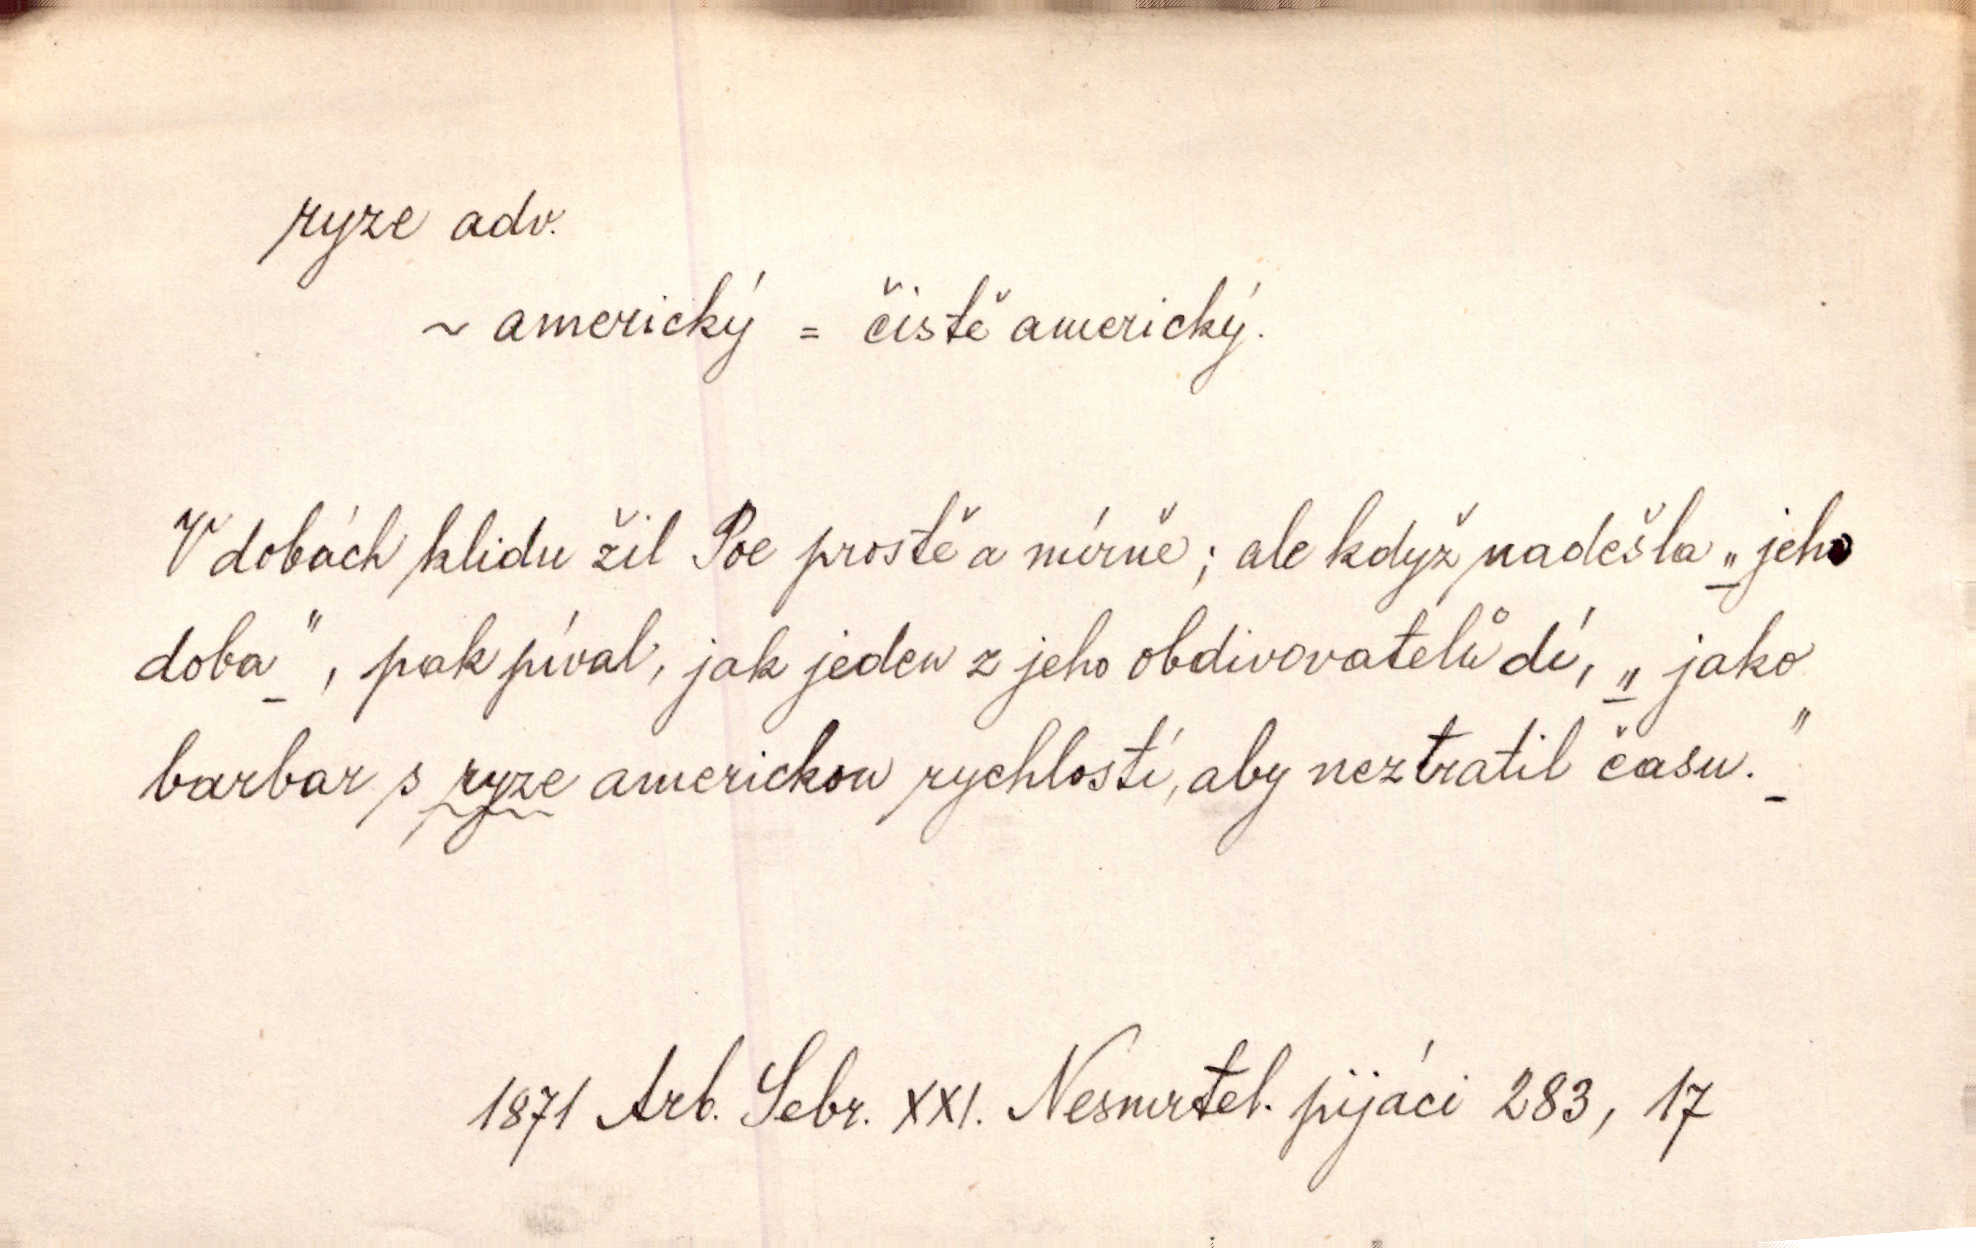 ryze adv.
~ americký = čistě americký.
V dobách klidu žil Poe prostě a mírně; ale když nadešla „jeho
doba", pak píval, jak jeden z jeho obdivovatelů dí, „jako
barbar s ryze americkou rychlostí, aby neztratil času."
1871 Arb. Sebr. XXI. Nesmrtel. pijáci 283, 17